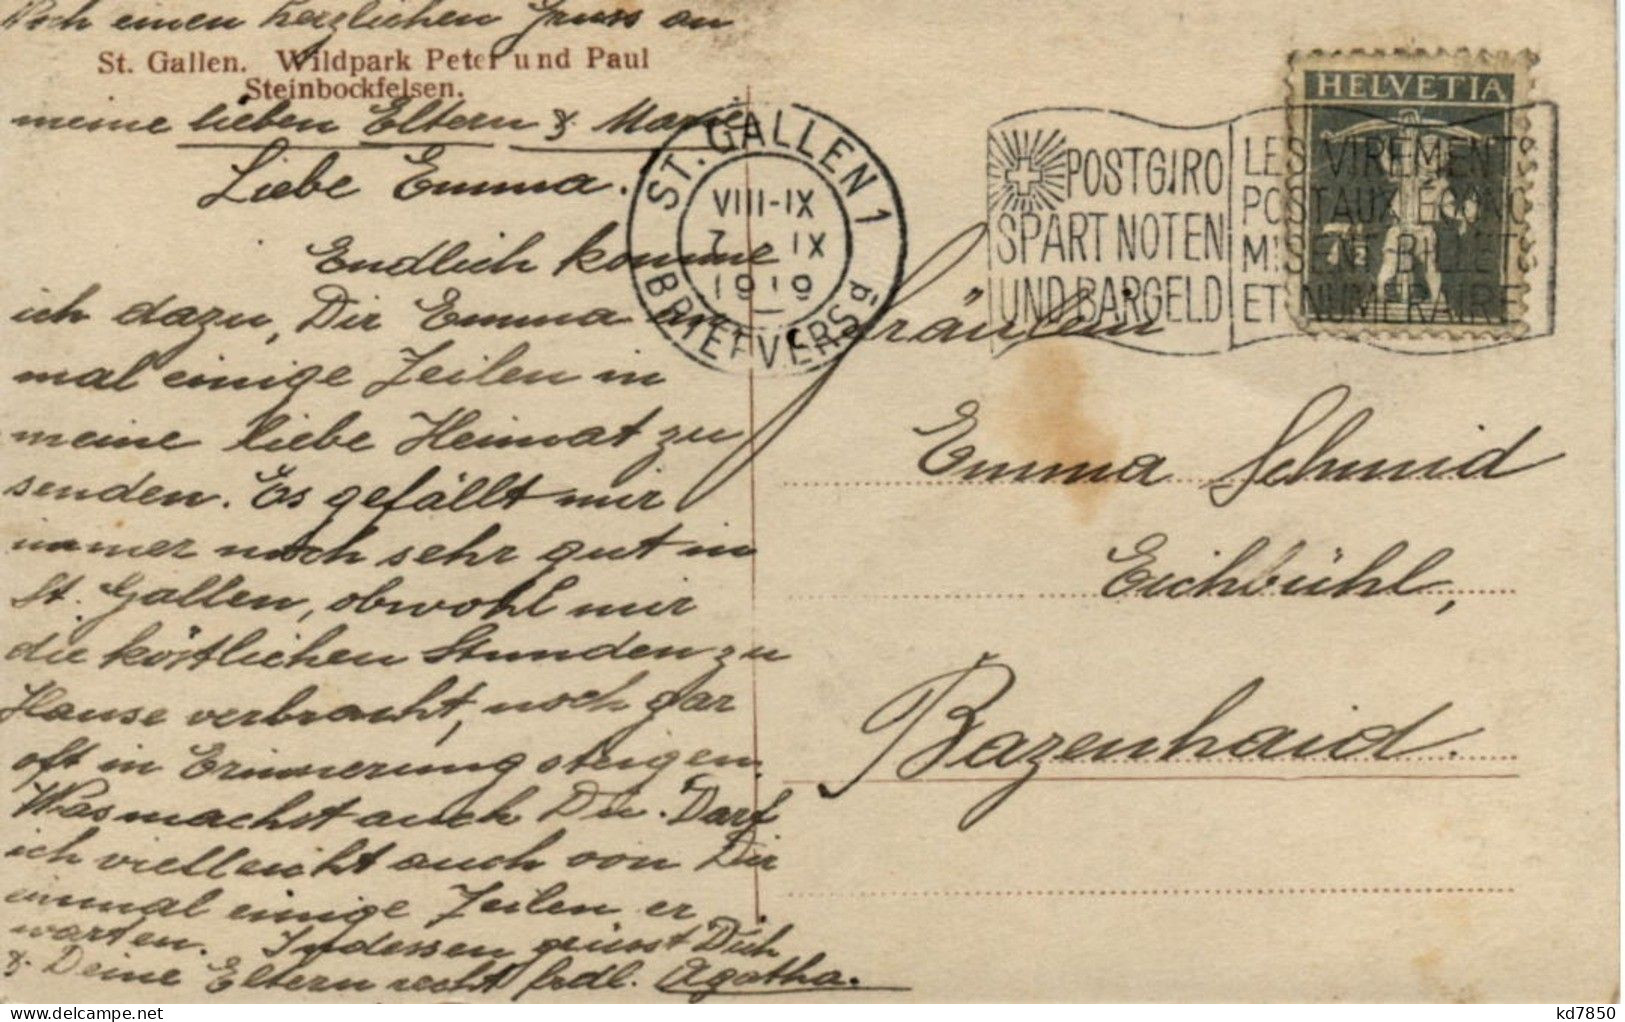 Noch einen herzlichen Gruss an
St. Gallen. Wildpark Peter und Paul
Steinbockfelsen.
meine lieben Eltern & Marie
Liebe Emma.
Endlich komme
ich dazu, Dir Emma
mal einige Zeilen in
meine liebe Heimat zu
senden. Es gefällt mir
immer noch sehr gut in
St. Gallen, obwohl mir
die köstlichen Stunden zu
Hause verbracht, noch gar
oft in Erinnerung steigen.
Was machst auch Du. Darf
ich vielleicht auch von Dir
einmal einige Zeilen er
warten. Indessen grüsst Dich
& Deine Eltern recht frdl. Agatha.
ST. GALLEN 1
VIII-IX
7. IX
1919
BRIEFVERSD.
POSTGIRO
SPART NOTEN
UND BARGELD
LES VIREMENTS
POSTAUX ÉCONO
MISENT BILLETS
ET NUMÉRAIRE
HELVETIA
7½
Fräulein
Emma Schmid
Eichbühl,
Bazenhaid.
kd7850